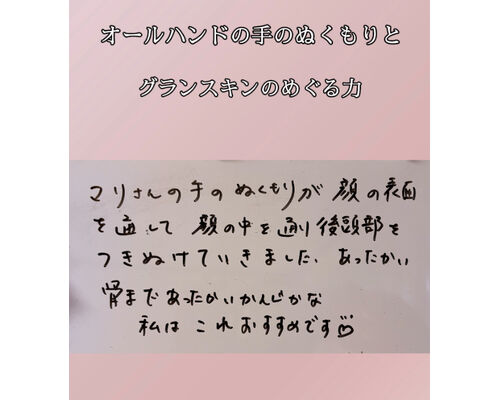 オールハンドの手のぬくもりと
グランスキンのめぐる力
マリさんの手のぬくもりが 顔の表面
を通して 顔の中を通り後頭部を
つきぬけていきました、あったかい
骨まであったかいかんじかな
私は これおすすめです♡